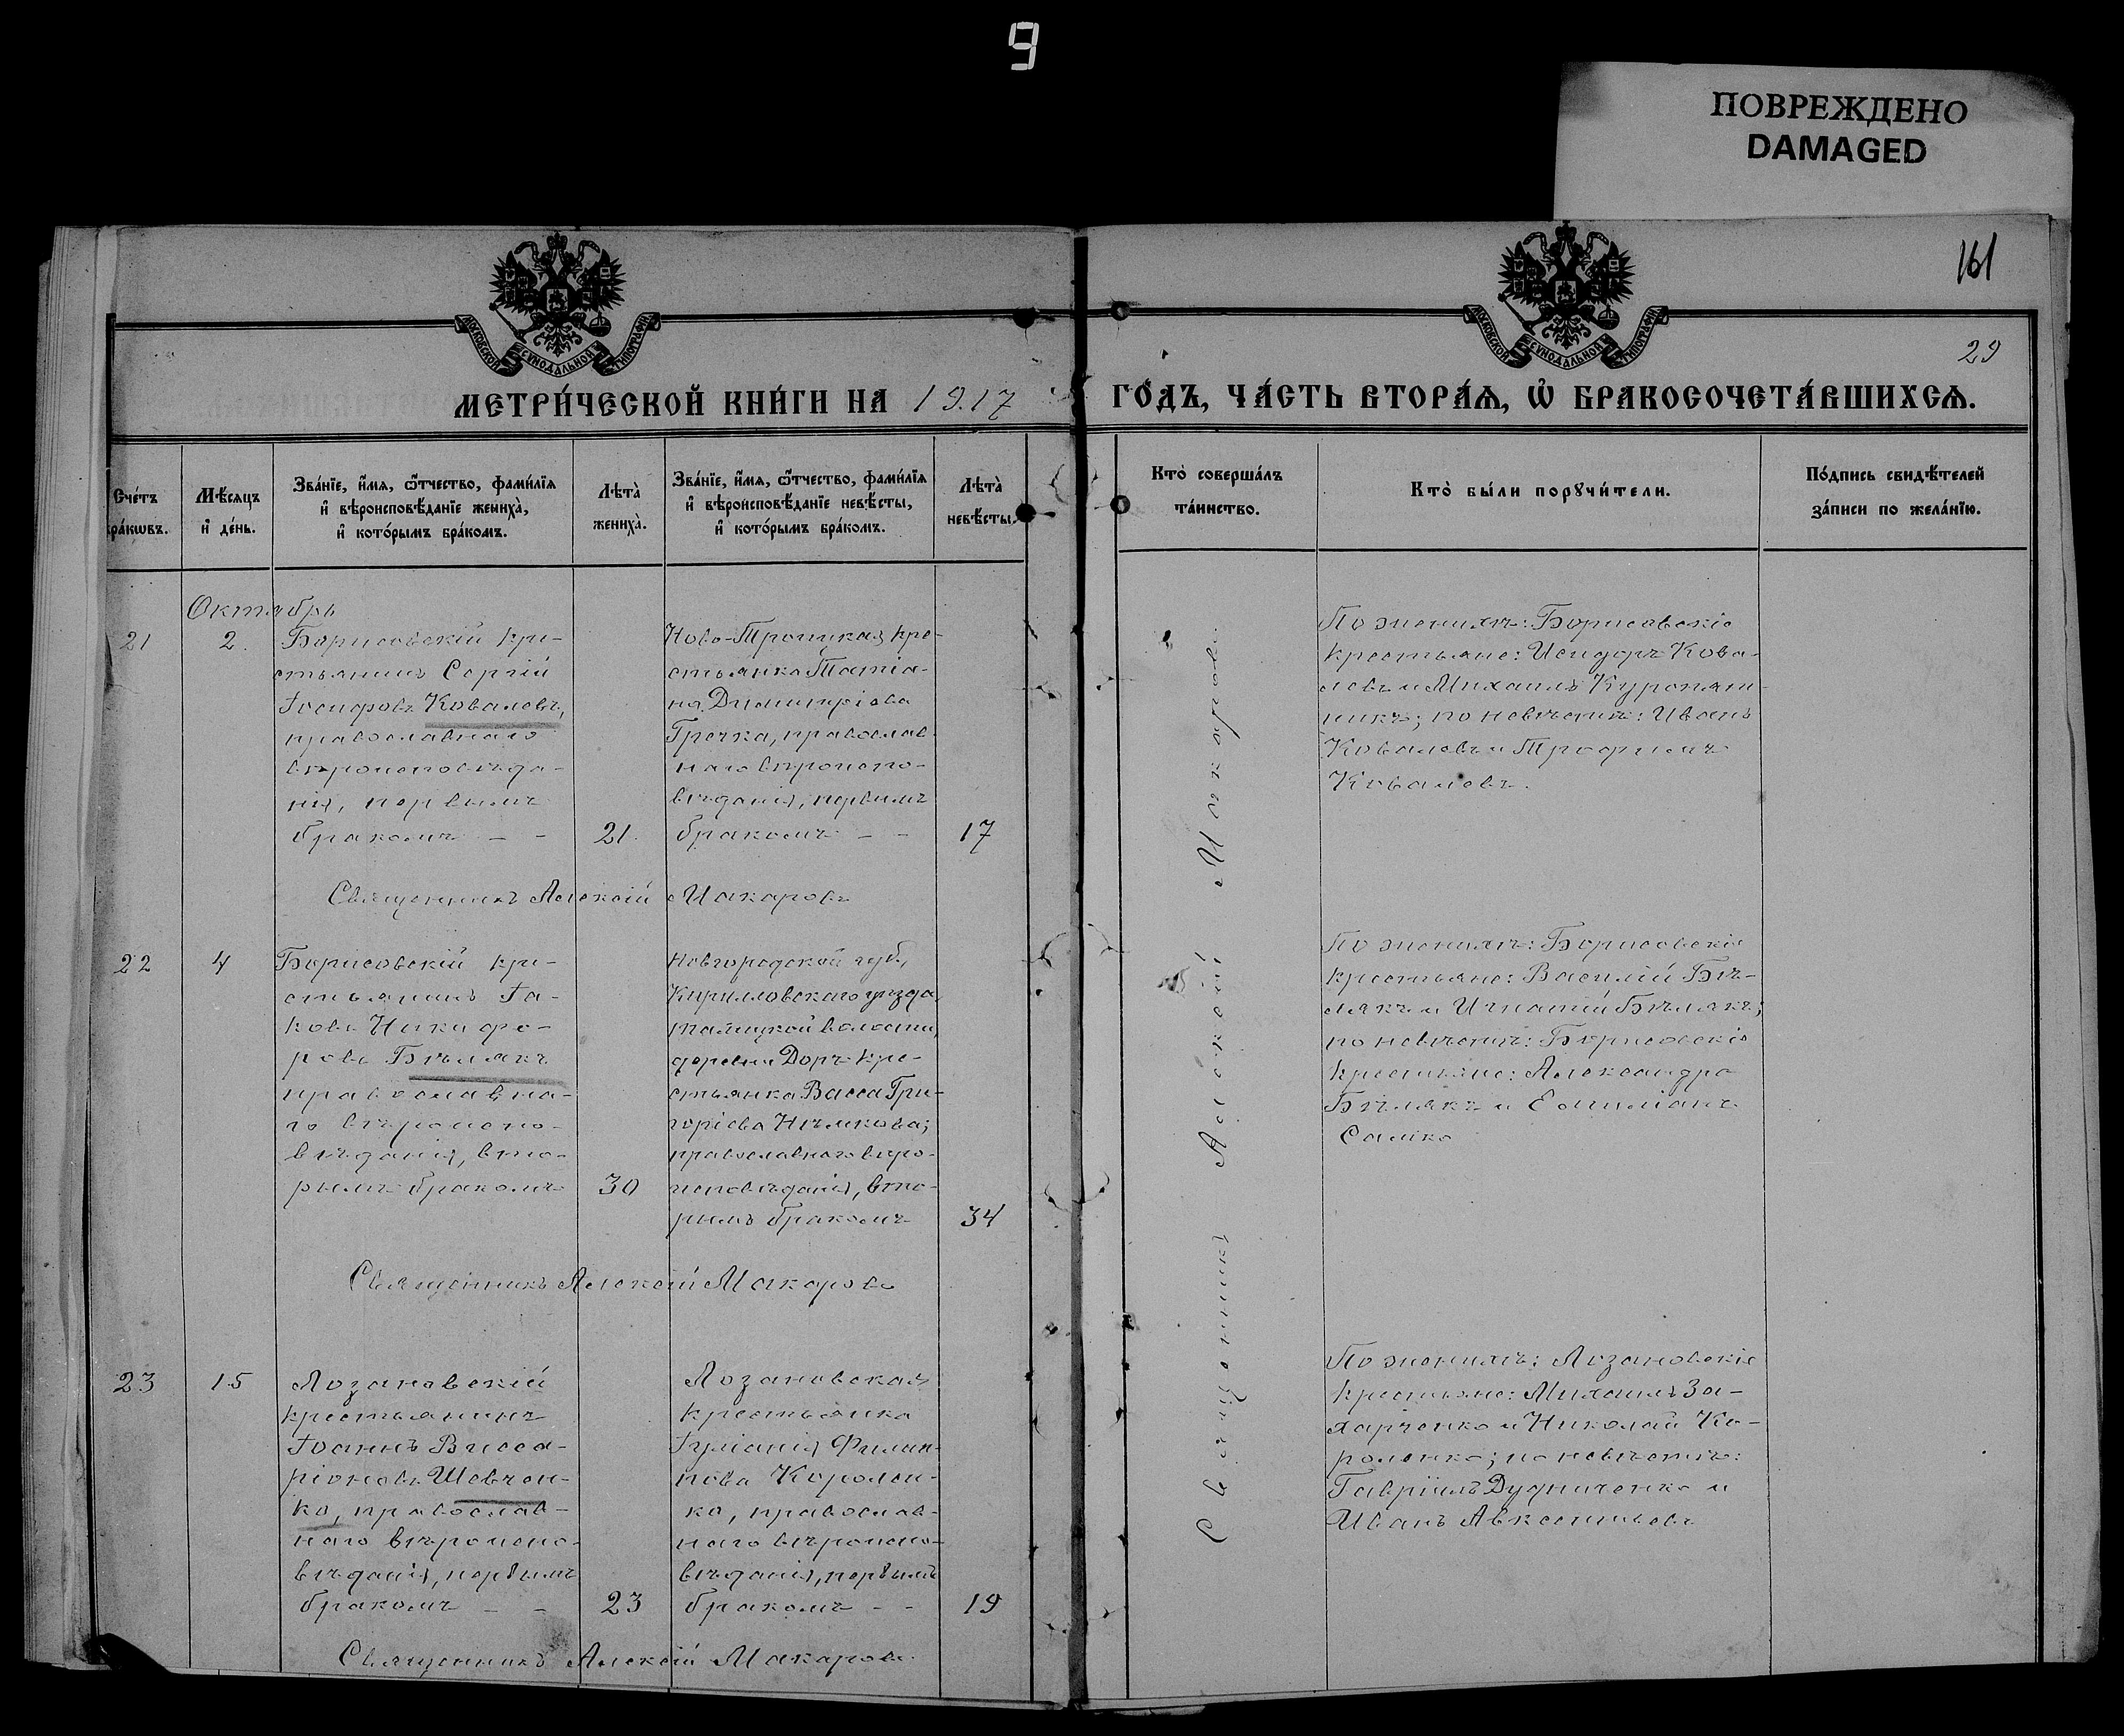 9
ПОВРЕЖДЕНО
DAMAGED
161
МОСКОВСКОЙ СѴНОДАЛЬНОЙ ТИПОГРАФІИ
МОСКОВСКОЙ СѴНОДАЛЬНОЙ ТИПОГРАФІИ
29
МЕТРИ́ЧЕСКОЙ КНИ́ГИ НА 1917
ГО́ДЪ, ЧА́СТЬ ВТОРА́Ѧ, Ѡ҆ БРАКОСОЧЕТА́ВШИХСѦ.
Сче́тъ
бра́кѡвъ.
Мѣ́сяцъ
и҆ де́нь.
Зва́нїе, и҆́мя, ѻ҆́тчество, фами́лїя
и҆ вѣроисповѣ́данїе жениха̀,
и҆ кото́рымъ бра́комъ.
Лѣта̀
жениха̀.
Зва́нїе, и҆́мя, ѻ҆́тчество, фами́лїя
и҆ вѣроисповѣ́данїе невѣ́сты,
и҆ кото́рымъ бра́комъ.
Лѣта̀
невѣ́сты.
Кто̀ соверша́лъ
та́инство.
Кто̀ бы́ли порꙋчи́тели.
По́дпись свидѣ́телей
за́писи по жела́нїю.
Октябрь
21
2.
Борисовскій кре-
стьянинъ Сергій
Іосифовъ Ковалевъ,
православнаго
вѣроисповѣда-
нія, первымъ
бракомъ – –
21.
Ново-Троицкая кре-
стьянка Татіа-
на Димитріева
Гречка, православ-
наго вѣроиспо-
вѣданія, первымъ
бракомъ – –
17
По женихѣ: Борисовскіе
крестьяне: Исидоръ Кова-
левъ и Михаилъ Куропят-
никъ; по невѣстѣ: Иванъ
Ковалевъ и Трофимъ
Ковалевъ.
Священникъ Алексій Макаровъ
22
4
Борисовскій кре-
стьянинъ Іа-
ковъ Никифо-
ровъ Бѣлякъ
православна-
го вѣроиспо-
вѣданія, вто-
рымъ бракомъ
30
Новгородской губ.,
Кирилловскаго уѣзда,
волости,
деревни Доръ кре-
стьянка Васса Гри-
горіева Нѣмкова;
православнаго вѣро-
исповѣданія, вто-
рымъ бракомъ
34
По женихѣ: Борисовскіе
крестьяне: Василій Бѣ-
лякъ и Игнатій Бѣлякъ;
по невѣстѣ: Борисовскіе
крестьяне: Александръ
Бѣлякъ и Емиліанъ
Священникъ Алексій Макаровъ
23
15
Лозановскій
крестьянинъ
Іоаннъ Висса-
ріоновъ Шевчен-
ко, православ-
наго вѣроиспо-
вѣданія, первымъ
бракомъ – –
23
Лозановская
крестьянка
Іуліанія Филип-
пова Королен-
ко, православ-
наго вѣроиспо-
вѣданія, первымъ
бракомъ – –
19
По женихѣ: Лозановскіе
крестьяне: Михаилъ За-
харченко и Николай Ко-
роленко; по невѣстѣ:
Гавріилъ Дудниченко и
Иванъ Авксентьевъ
Священникъ Алексій Макаровъ
Священникъ Алексій Макаровъ.